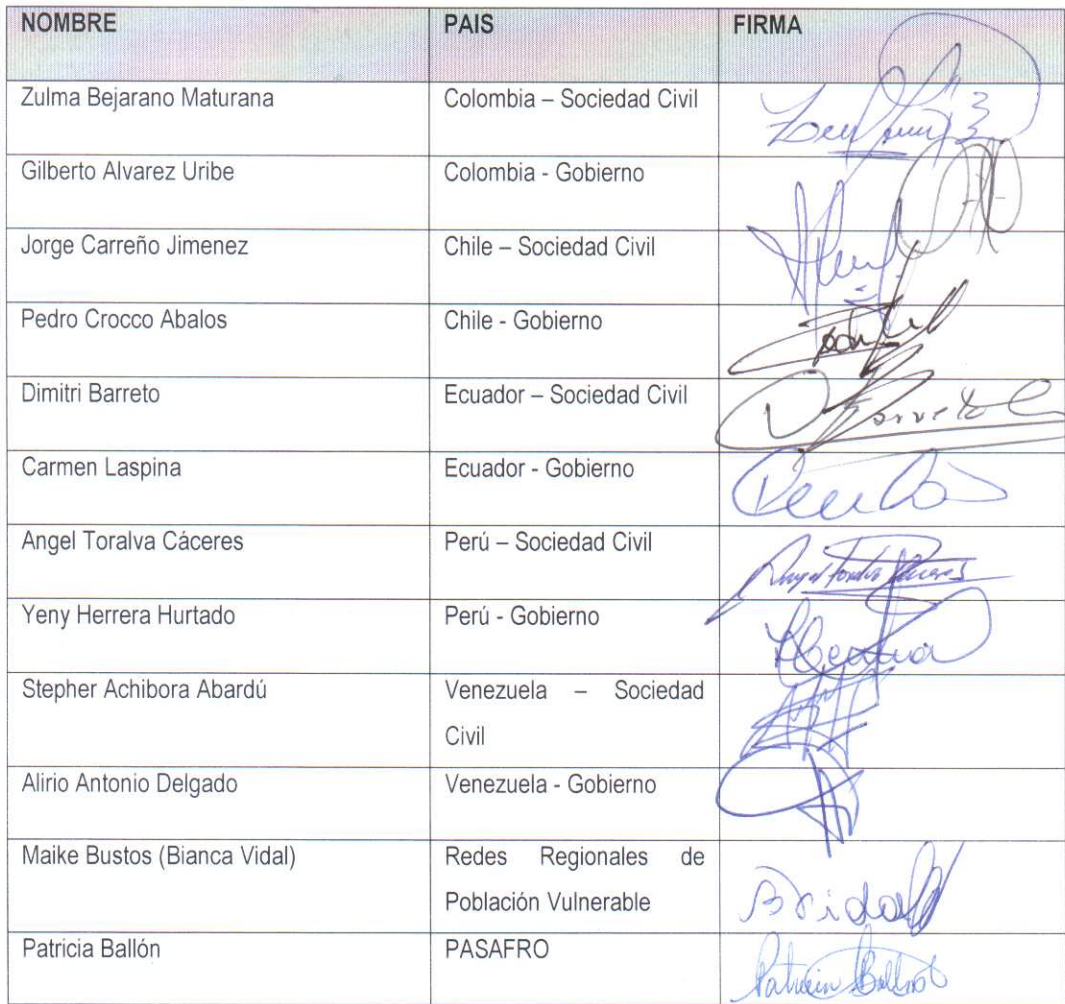 NOMBRE PAIS FIRMA
Zulma Bejarano Maturana Colombia – Sociedad Civil
Gilberto Alvarez Uribe Colombia - Gobierno
Jorge Carreño Jimenez Chile – Sociedad Civil
Pedro Crocco Abalos Chile - Gobierno
Dimitri Barreto Ecuador – Sociedad Civil
Carmen Laspina Ecuador - Gobierno
Angel Toralva Cáceres Perú – Sociedad Civil Angel Toralva Cáceres
Yeny Herrera Hurtado Perú - Gobierno
Stepher Achibora Abardú Venezuela – Sociedad
Civil
Alirio Antonio Delgado Venezuela - Gobierno
Maike Bustos (Bianca Vidal) Redes Regionales de
Población Vulnerable BVidal
Patricia Ballón PASAFRO Patricia Ballón